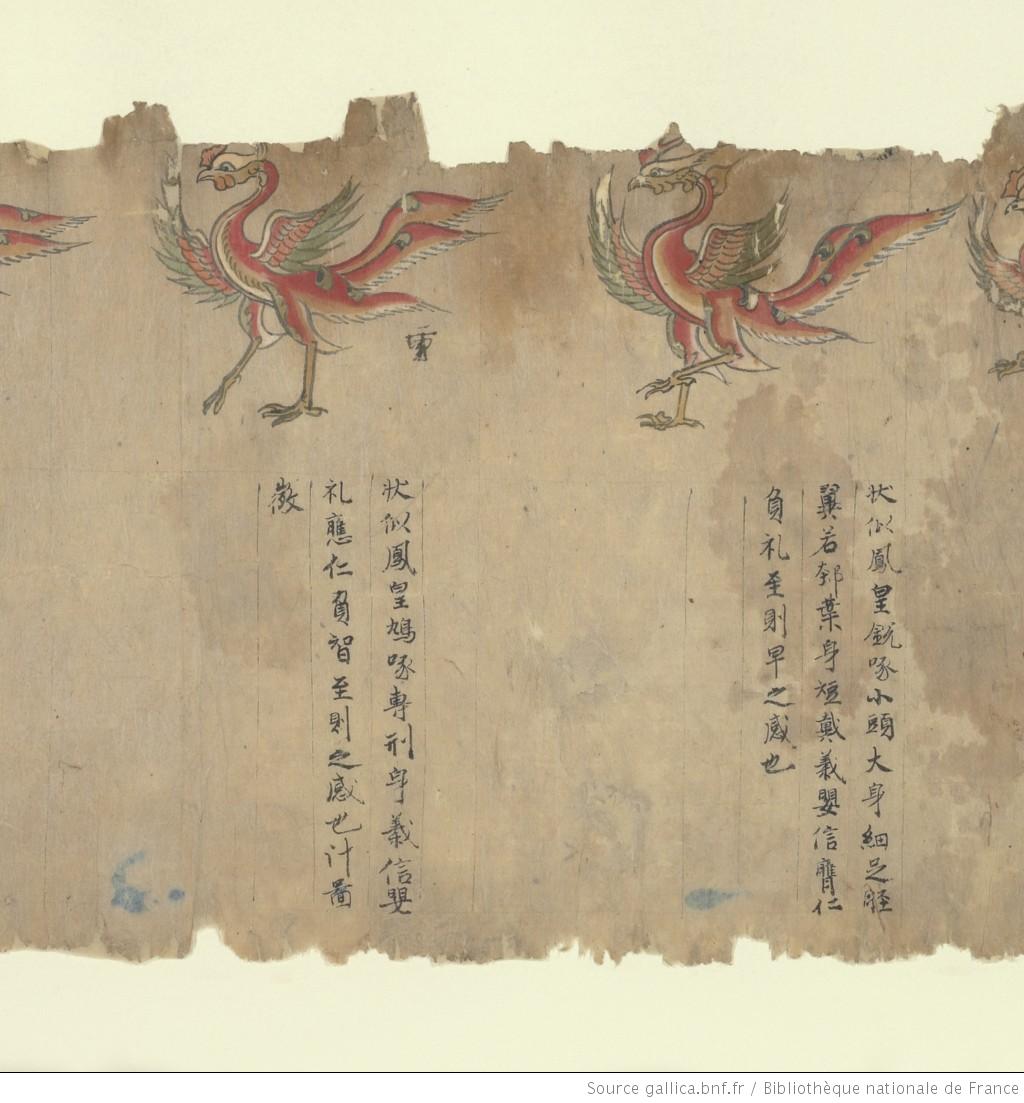 狀似鳳皇銳啄小頭大身細足脛
翼若邾葉身短戴義嬰信膺仁
負礼至則旱之感也
狀似鳳皇鳩啄專刑身義信嬰
礼應仁負智至則之感也計啚
徵
Source gallica.bnf.fr / Bibliothèque nationale de France